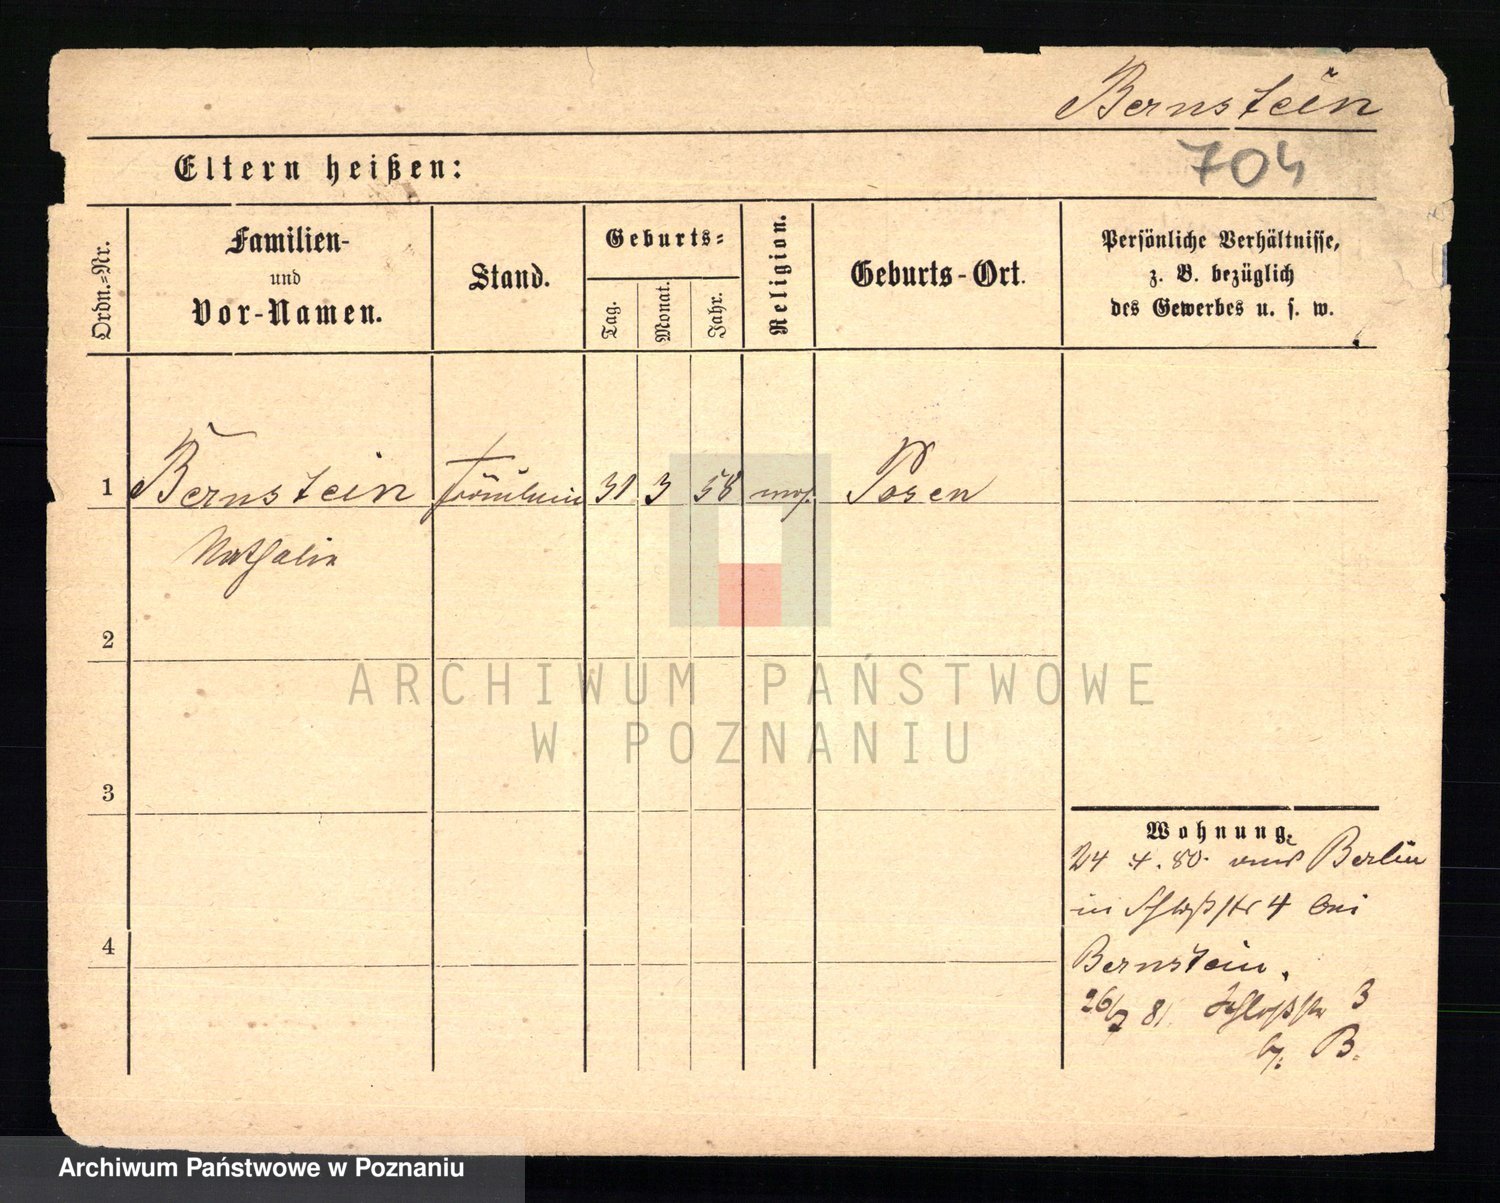 Bernstein
704
Eltern heißen:
Ordn.-Nr.
Familien-
und
Vor-Namen.
Stand.
Geburts-
Tag.
Monat.
Jahr.
Religion.
Geburts-Ort.
Persönliche Verhältnisse,
z. B. bezüglich
des Gewerbes u. s. w.
1 Bernstein Fräulein 31 3 58 mos. Posen
Nathalie
2
3
4
Wohnung.
24 4. 80. aus Berlin
in Schloßstr 4 bei
Bernstein.
26/7 81 Schloßstr 3
b. B.
ARCHIWUM PAŃSTWOWE
W POZNANIU
Archiwum Państwowe w Poznaniu